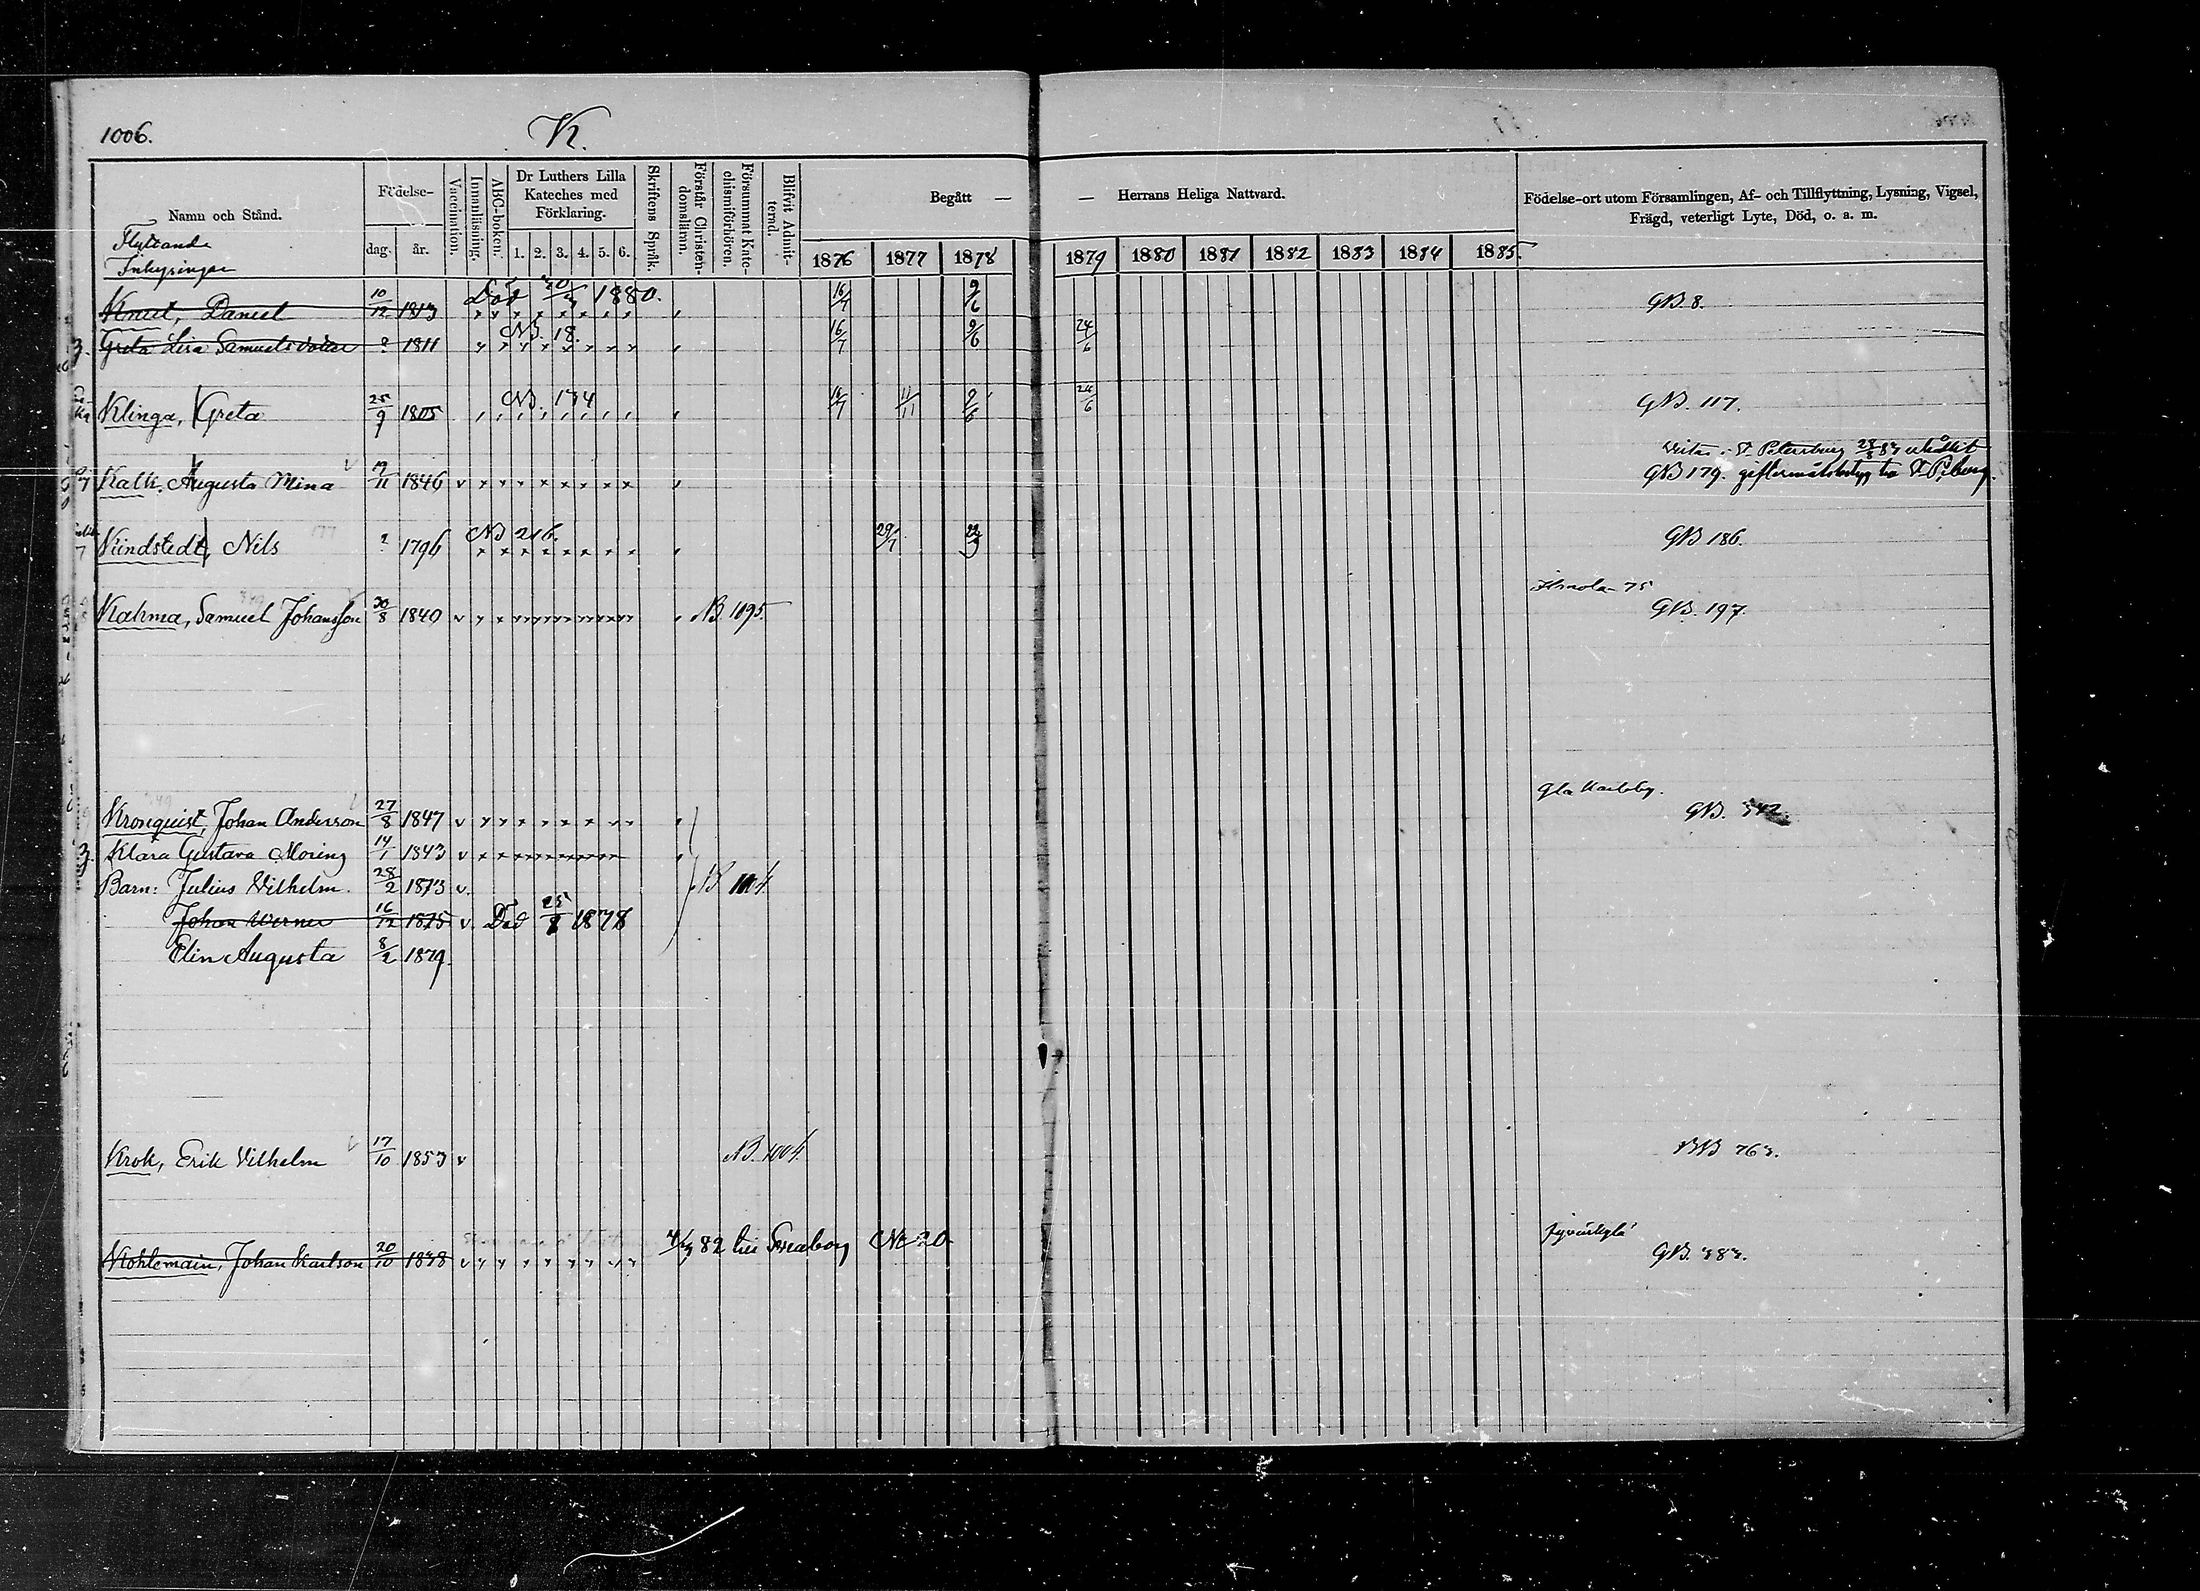 1006.
K.
Namn och Stånd.
Flyttande
Inhysingar
Födelse-
dag.
år.
Vaccination.
Innanläsning.
ABC-boken.
Dr Luthers Lilla
Kateches med
Förklaring.
1. 2. 3. 4. 5. 6.
Skriftens Språk.
Förstår Christen-
domslärn.
Försummat Kate-
chismiförhören.
Blifvit Admit-
terad.
Begått — — Herrans Heliga Nattvard.
1876 1877 1878 1879 1880 1881 1882 1883 1884 1885.
Födelse-ort utom Församlingen, Af- och Tillflyttning, Lysning, Vigsel,
Frägd, veterligt Lyte, Död, o. a. m.
Knut, Daniel 10/12 1813 Död 1880. 16/7 9/6 GB. 8.
Greta Lisa Samuelsdotter ? 1811 NB. 18. 16/7 9/6 24/6
Klinga, Greta 25/9 1805 NB. 174 16/7 11/11 9/6 24/6 GB. 117.
St. Petersburg
Kalk, Augusta Mina 1846 GB 179.
Kindstedt, Nils ? 1796 NB 216. 29/7 GB 186.
75
Kahma, Samuel Johansson 30/8 1840 NB. 1095. GB. 197.
Gla Karleby.
Kronquist, Johan Anderson 27/8 1847 GB. 342.
Klara Gustava Moring 14/1 1843
Barn: Julius Vilhelm. 28/2 1873 v.
Johan Werner 16/12 1875 v. Död 1878
Elin Augusta 8/2 1879.
Krok, Erik Vilhelm 17/10 1853 v NB. 1004. BB 763.
Jyväskylä
Kohlemain, Johan Karlson 20/10 1838 82 till Sveaborg No 20 GB. 383.